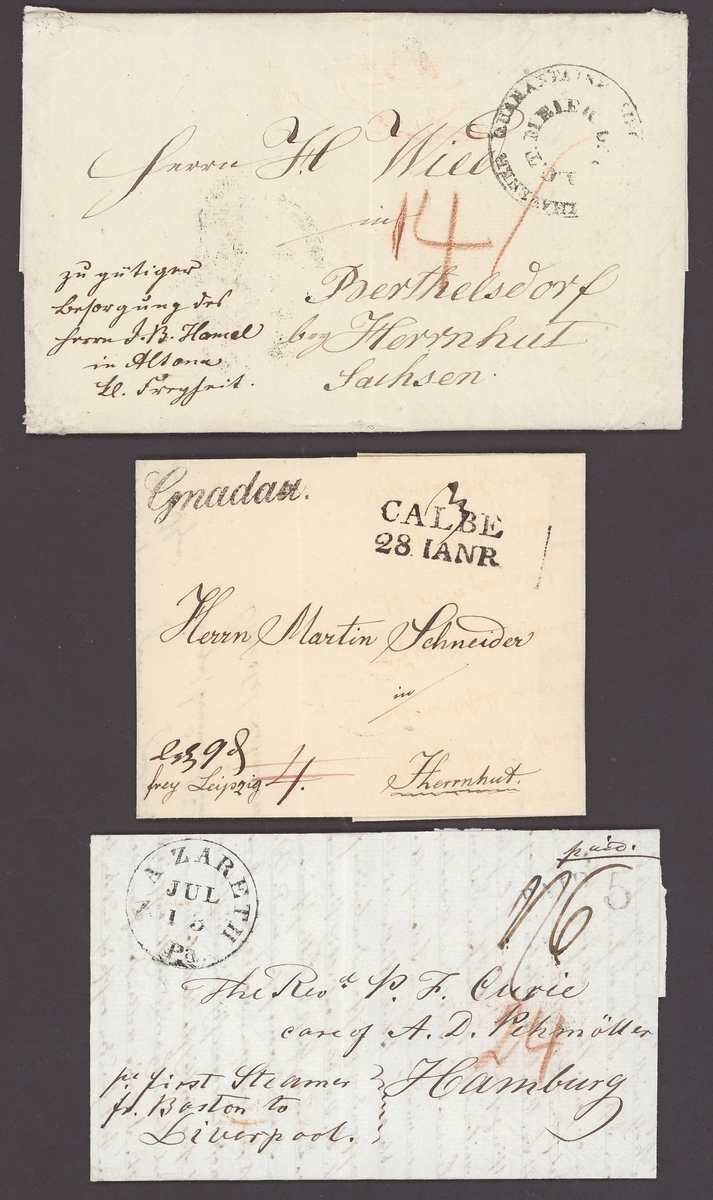 QUARANTAINE
J.C.T. MEIER
Herrn H Wied
in
14
Berthelsdorf
bey Herrnhut
Sachsen.
zu gütiger
Besorgung des
Herrn J. B. Hamel
in Altona
kl. Freyheit.
Gnadau.
3
CALBE
28 IANR
Herrn Martin Schneider
in
Herrnhut.
frey Leipzig
4.
NAZARETH
JUL
13
Pa.
paid.
5
The Revd P. F. Curie
care of A. D. Pehmöller
24
Hamburg
pr first Steamer
fr. Boston to
Liverpool.